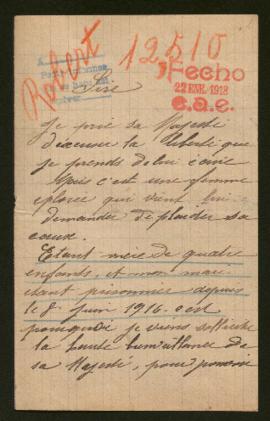 Robert
12510
Fecho
22 ENE. 1918
e.a.e.
Sire
Je prie sa Majesté
d'excuser la liberté que
je prends de lui écrire
Mais c'est une femme
éplorée qui vient lui
demander de plaider sa
cause.
Etant mère de quatre
enfants, et mon mari
étant prisonnier depuis
le 8 juin 1916. c'est
pourquoi je viens solliciter
la haute bienveillance de
sa Majesté, pour